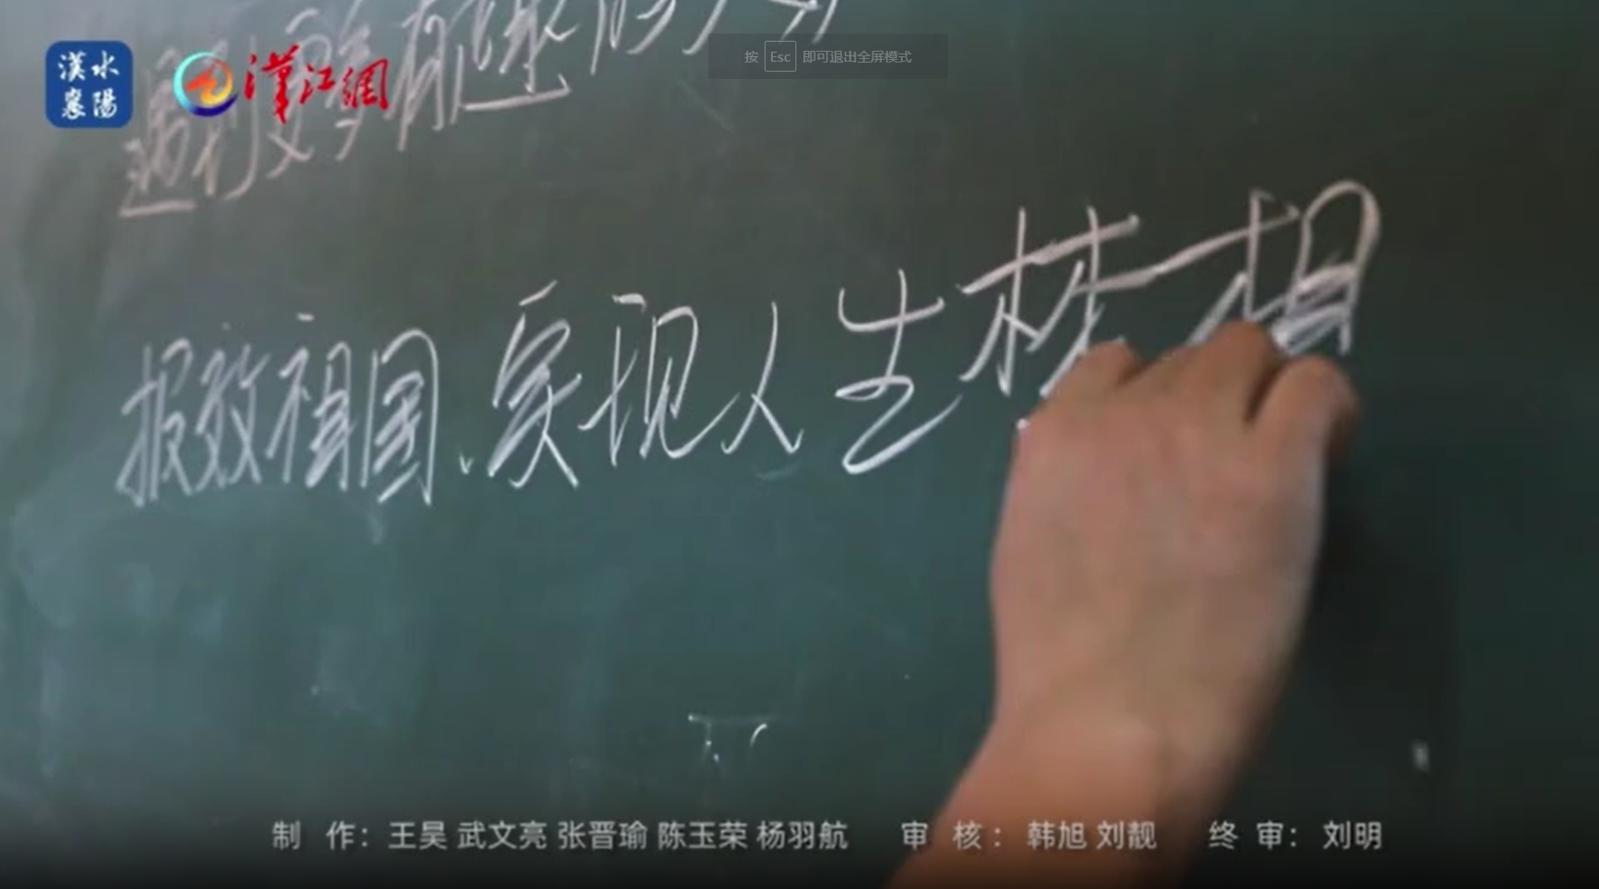 遇到更多有趣的人
漢水
襄陽
漢江網
按 Esc 即可退出全屏模式
报效祖国、实现人生梦想
制 作：王昊 武文亮 张晋瑜 陈玉荣 杨羽航 审 核：韩旭 刘靓 终 审：刘明